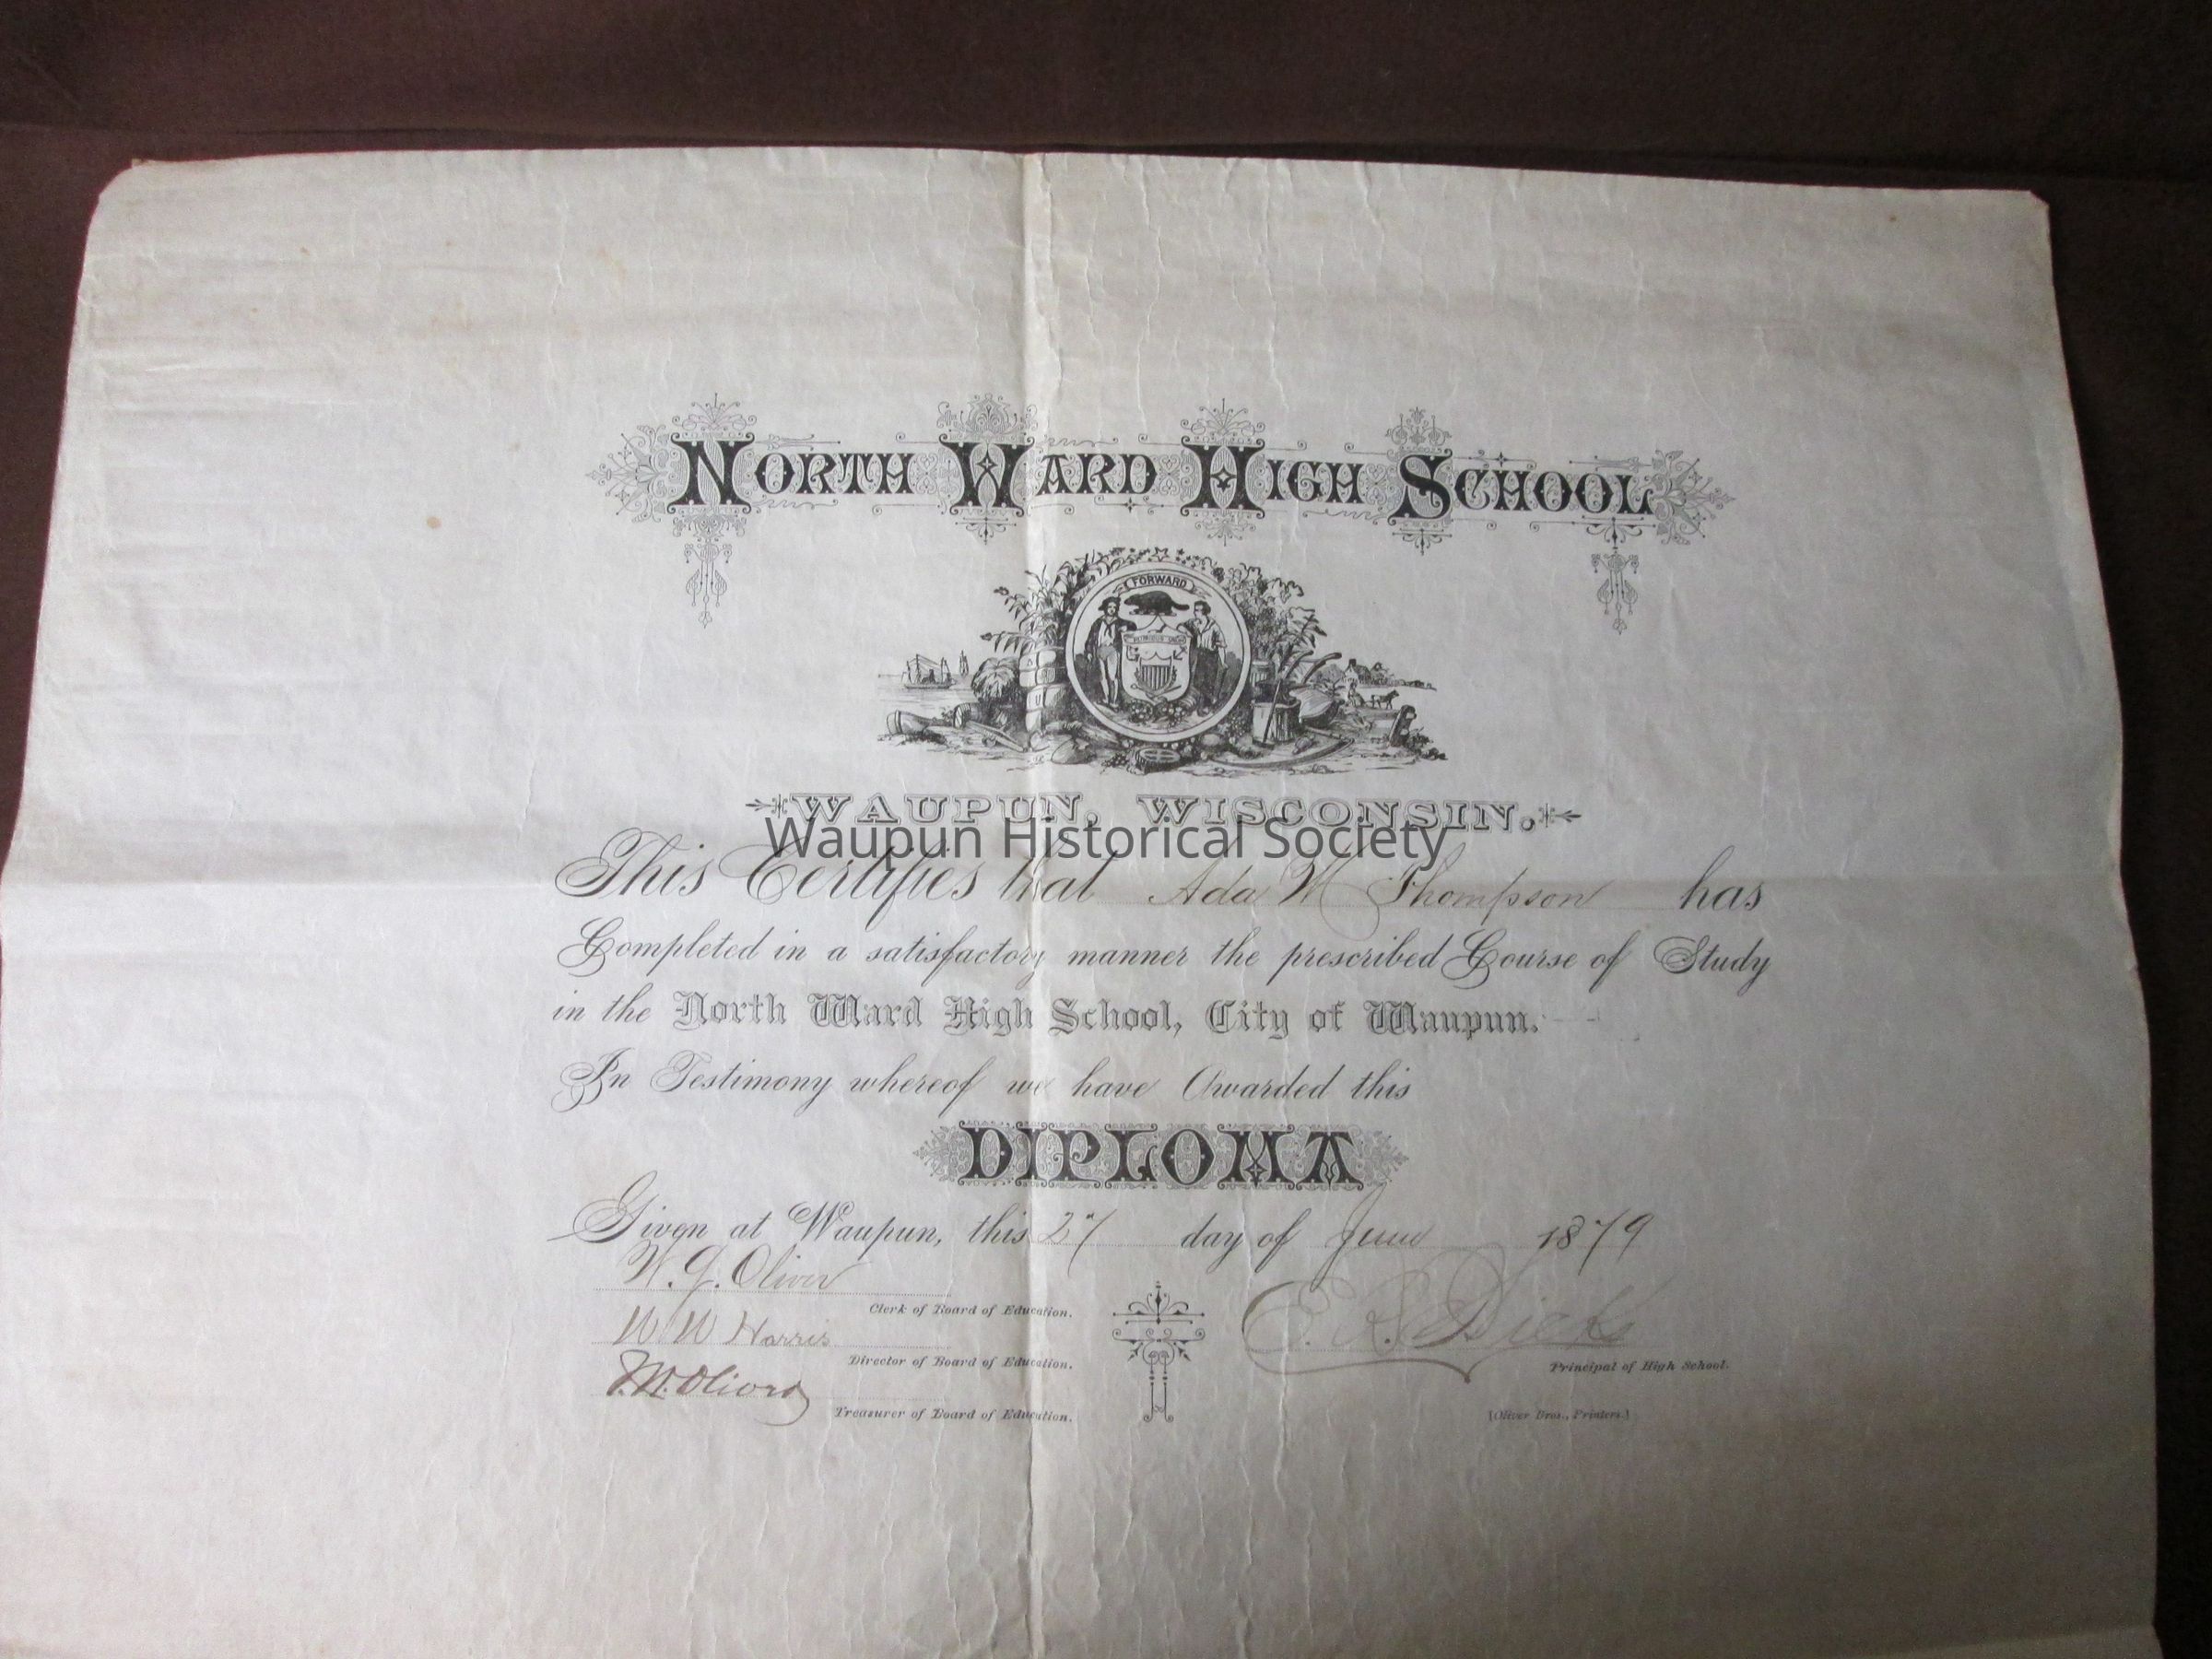 NORTH WARD HIGH SCHOOL
FORWARD
WAUPUN, WISCONSIN.
Waupun Historical Society
This Certifies that Ada M Thompson has
Completed in a satisfactory manner the prescribed Course of Study
in the North Ward High School, City of Waupun.
In Testimony whereof we have Awarded this
DIPLOMA
Given at Waupun, this 27 day of June 1879
W. G. Oliver
Clerk of Board of Education.
W W Harris
Director of Board of Education.
Treasurer of Board of Education.
Principal of High School.
[Oliver Bros., Printers.]